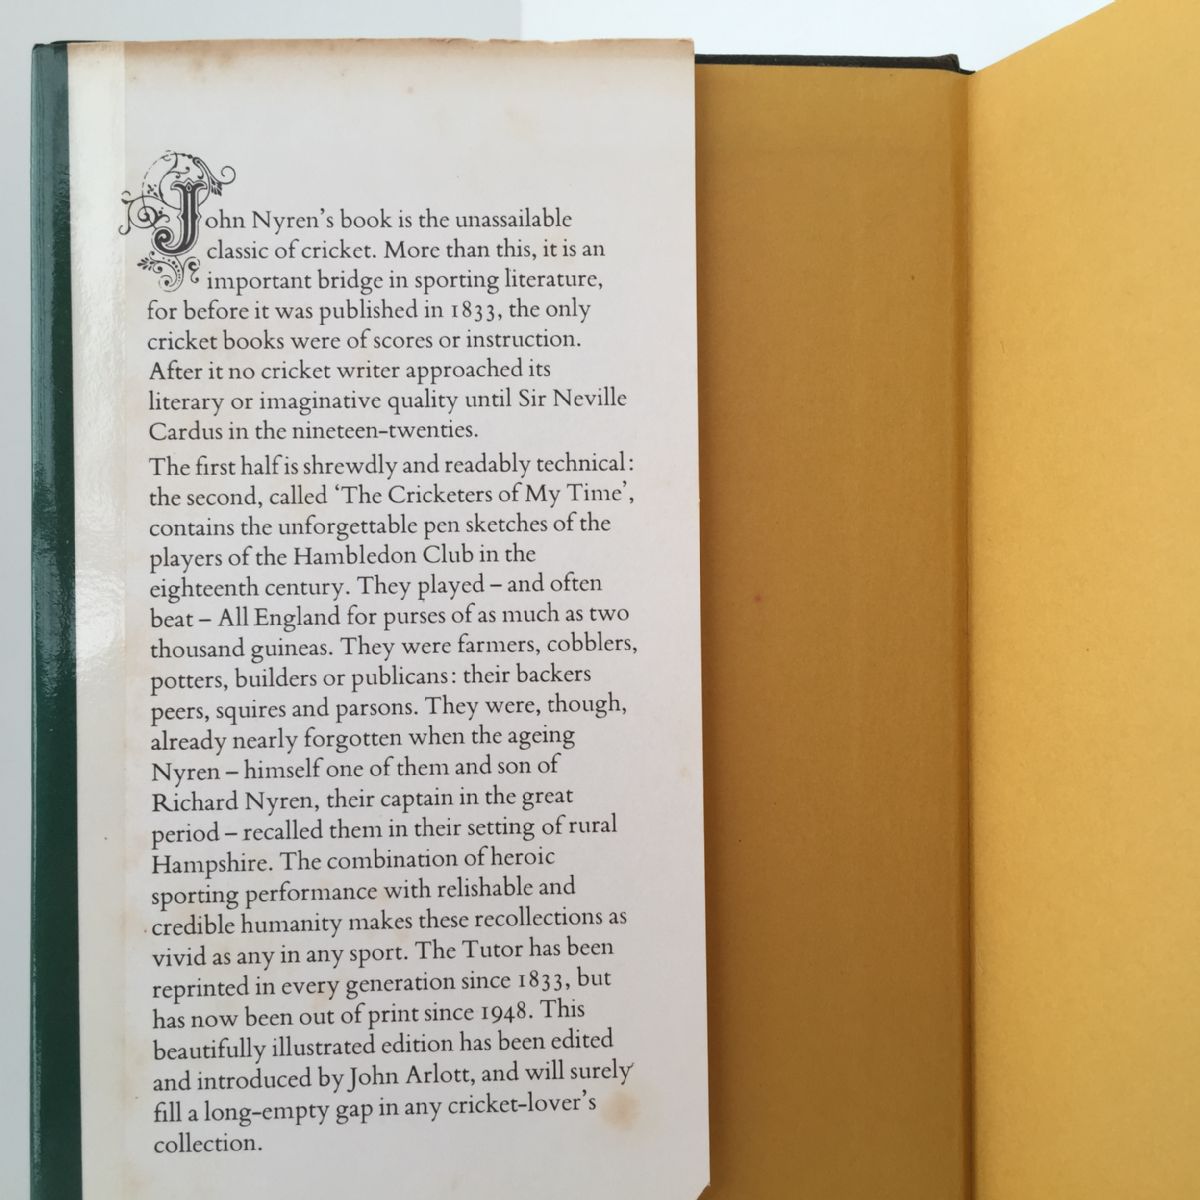 John Nyren's book is the unassailable
classic of cricket. More than this, it is an
important bridge in sporting literature,
for before it was published in 1833, the only
cricket books were of scores or instruction.
After it no cricket writer approached its
literary or imaginative quality until Sir Neville
Cardus in the nineteen-twenties.
The first half is shrewdly and readably technical:
the second, called ‘The Cricketers of My Time’,
contains the unforgettable pen sketches of the
players of the Hambledon Club in the
eighteenth century. They played – and often
beat – All England for purses of as much as two
thousand guineas. They were farmers, cobblers,
potters, builders or publicans: their backers
peers, squires and parsons. They were, though,
already nearly forgotten when the ageing
Nyren – himself one of them and son of
Richard Nyren, their captain in the great
period – recalled them in their setting of rural
Hampshire. The combination of heroic
sporting performance with relishable and
credible humanity makes these recollections as
vivid as any in any sport. The Tutor has been
reprinted in every generation since 1833, but
has now been out of print since 1948. This
beautifully illustrated edition has been edited
and introduced by John Arlott, and will surely
fill a long-empty gap in any cricket-lover's
collection.